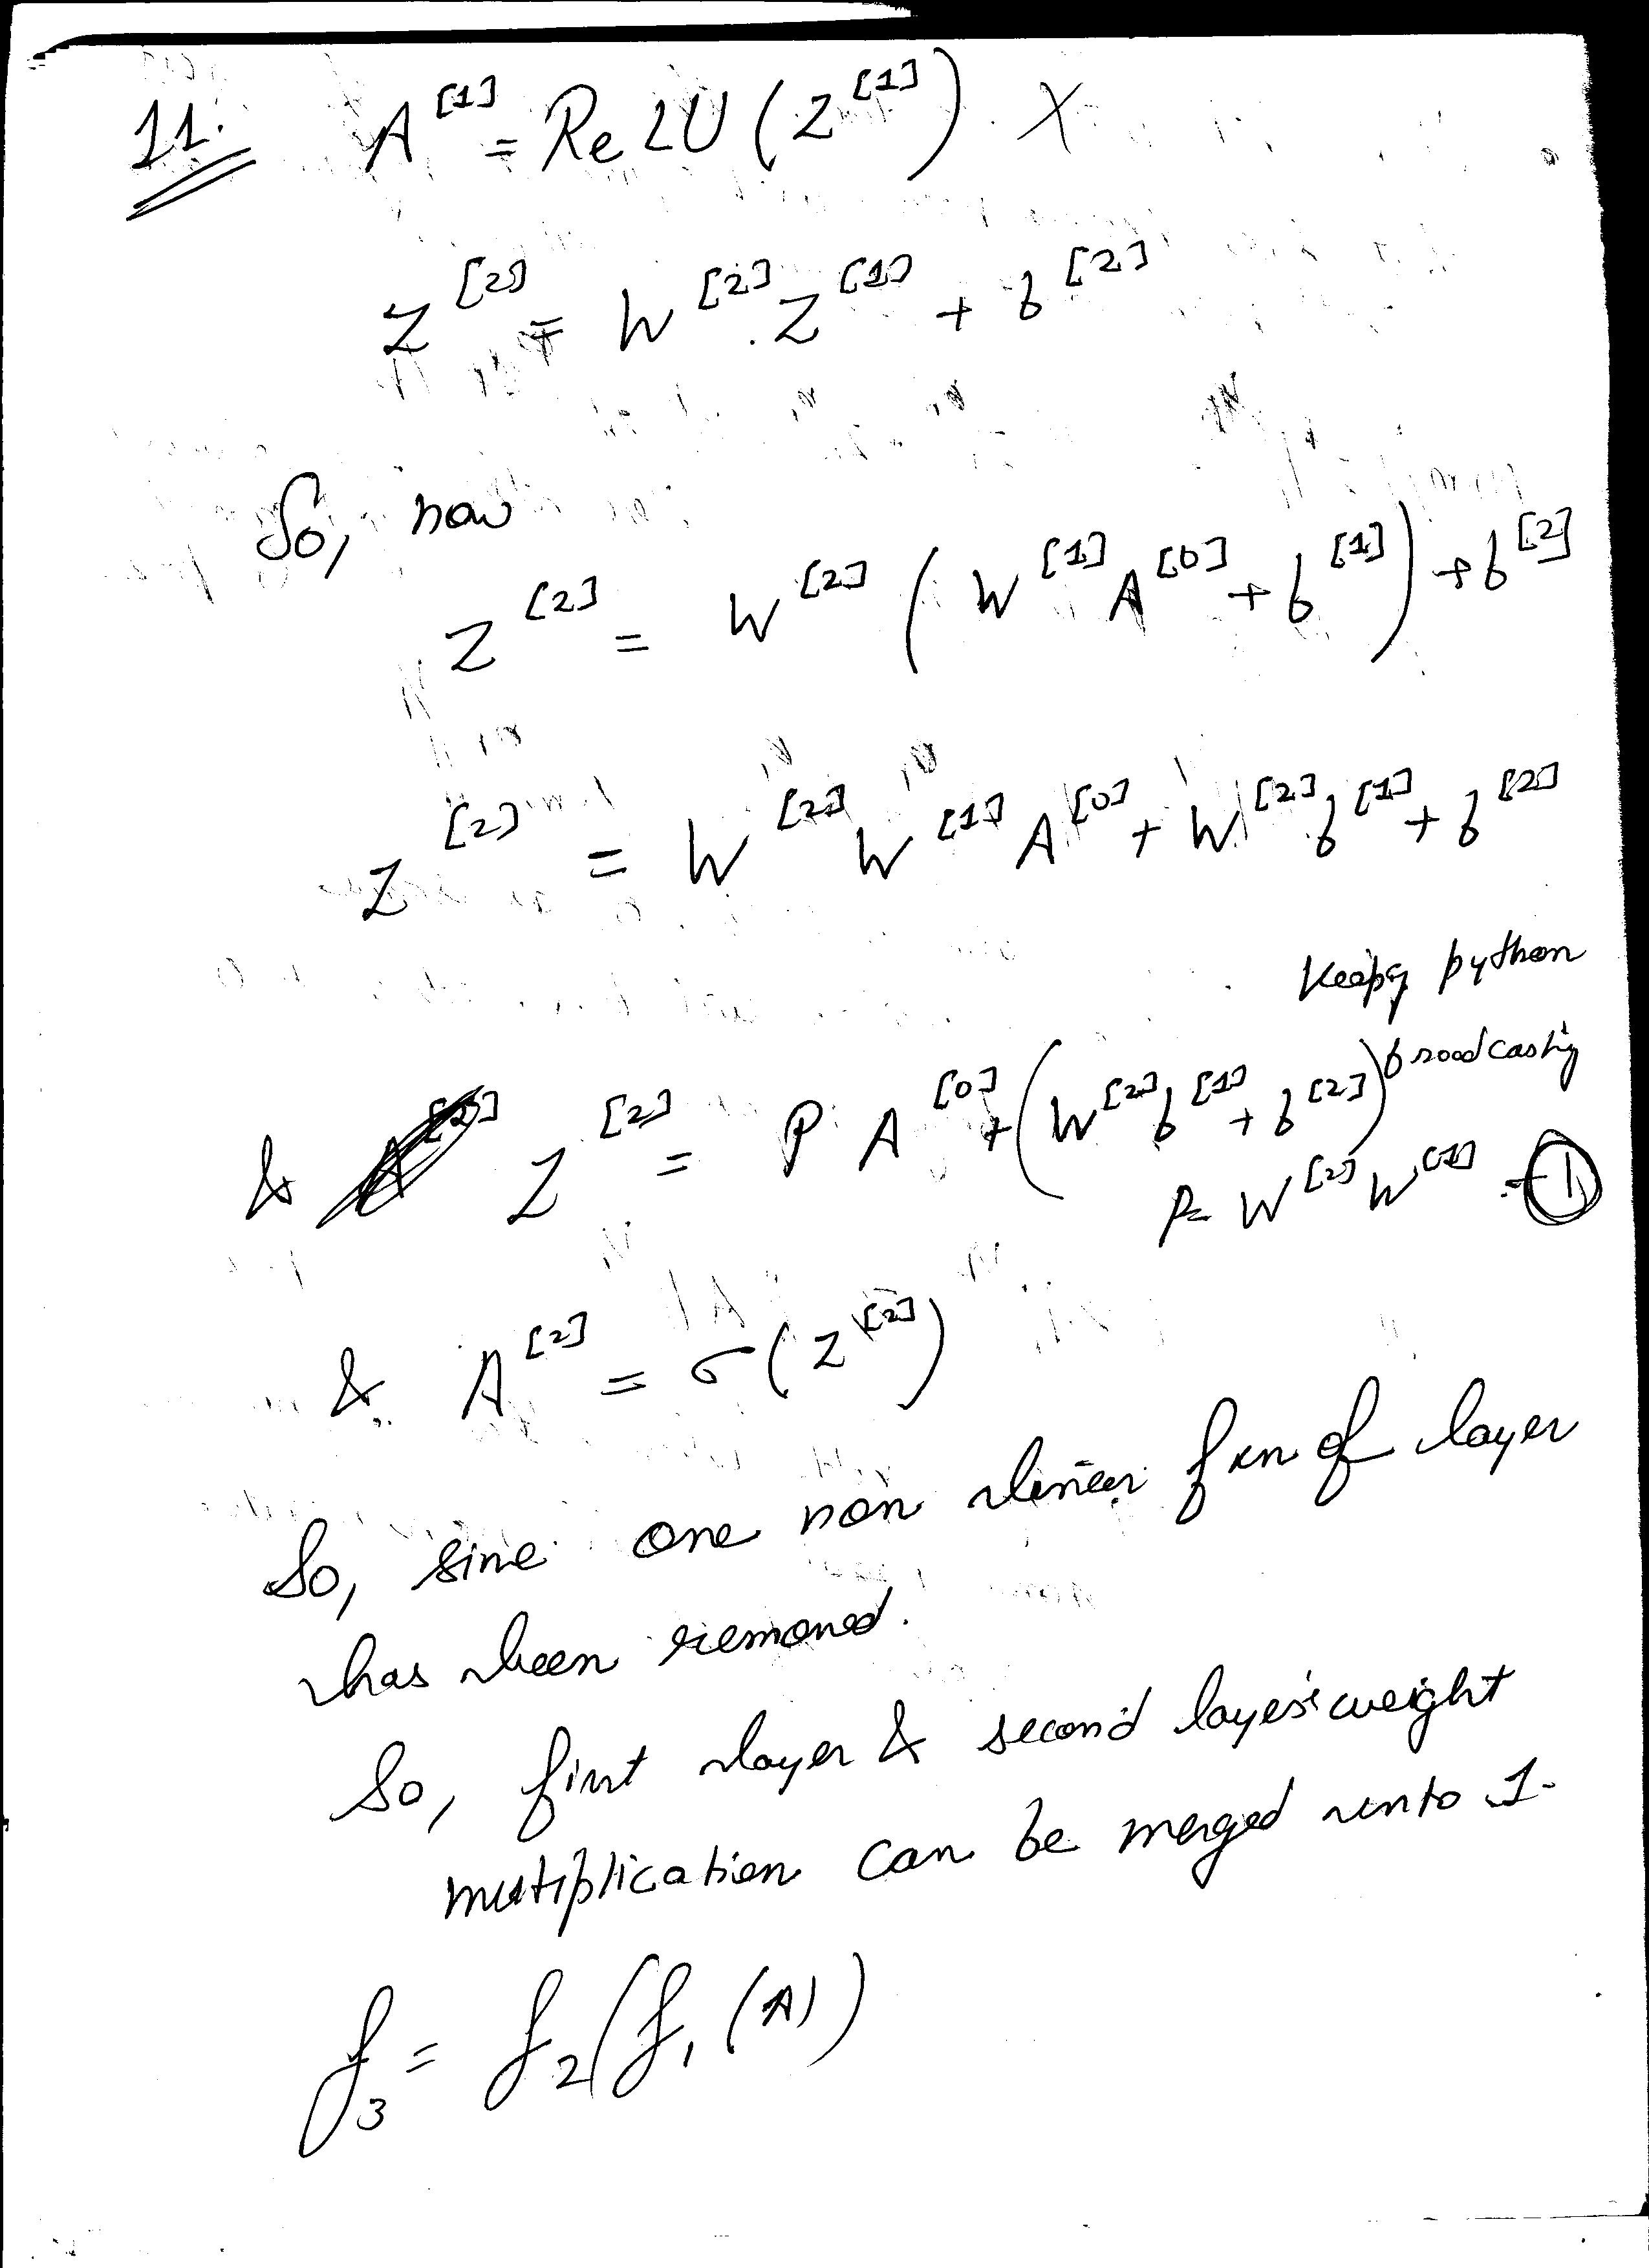 11. A^[1] = ReLU(Z^[1]) X
Z^[2] = W^[2].Z^[1] + b^[2]
So, now
Z^[2] = W^[2] (W^[1] A^[0] + b^[1]) + b^[2]
Z^[2] = W^[2] W^[1] A^[0] + W^[2] b^[1] + b^[2]
Keepg python
broadcastig
& Z^[2] = P A^[0] + (W^[2] b^[1] + b^[2])
P = W^[2] W^[1] - 1
& A^[2] = σ(Z^[2])
So, sine one non linear fxn of layer
has been removed.
So, first layer & second layer's weight
multiplication can be merged into 1.
f3 = f2(f1(A))